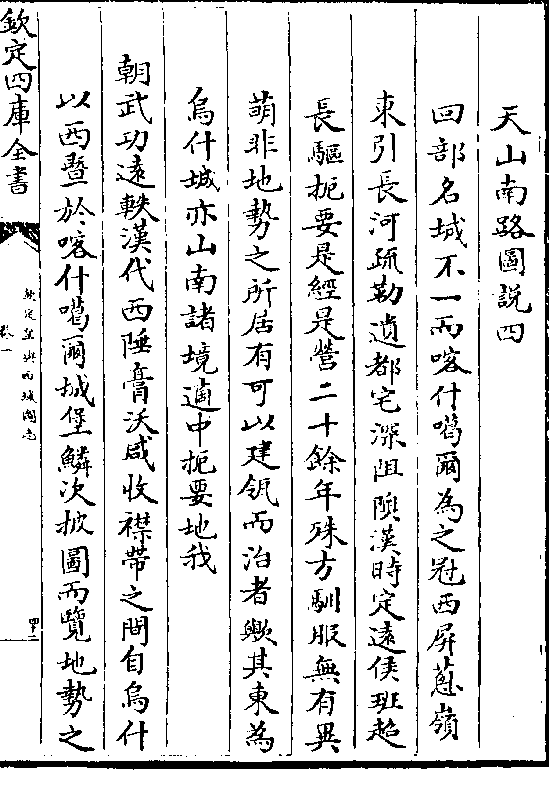 天山南路圖說四
回部名城不一而喀什噶爾為之冠西屏蔥嶺
東引長河疏勒遺都宅深阻隩漢時定遠侯班超
長驅扼要是經是營二十餘年殊方馴服無有異
萌非地勢之所居有可以建瓴而治者歟其東為
烏什城亦山南諸境適中扼要地我
朝武功遠軼漢代西陲膏沃咸收襟帶之間自烏什
以西暨於喀什噶爾城堡鱗次披圖而覽地勢之
欽定四庫全書
欽定皇輿西域圖志
卷一
四十二